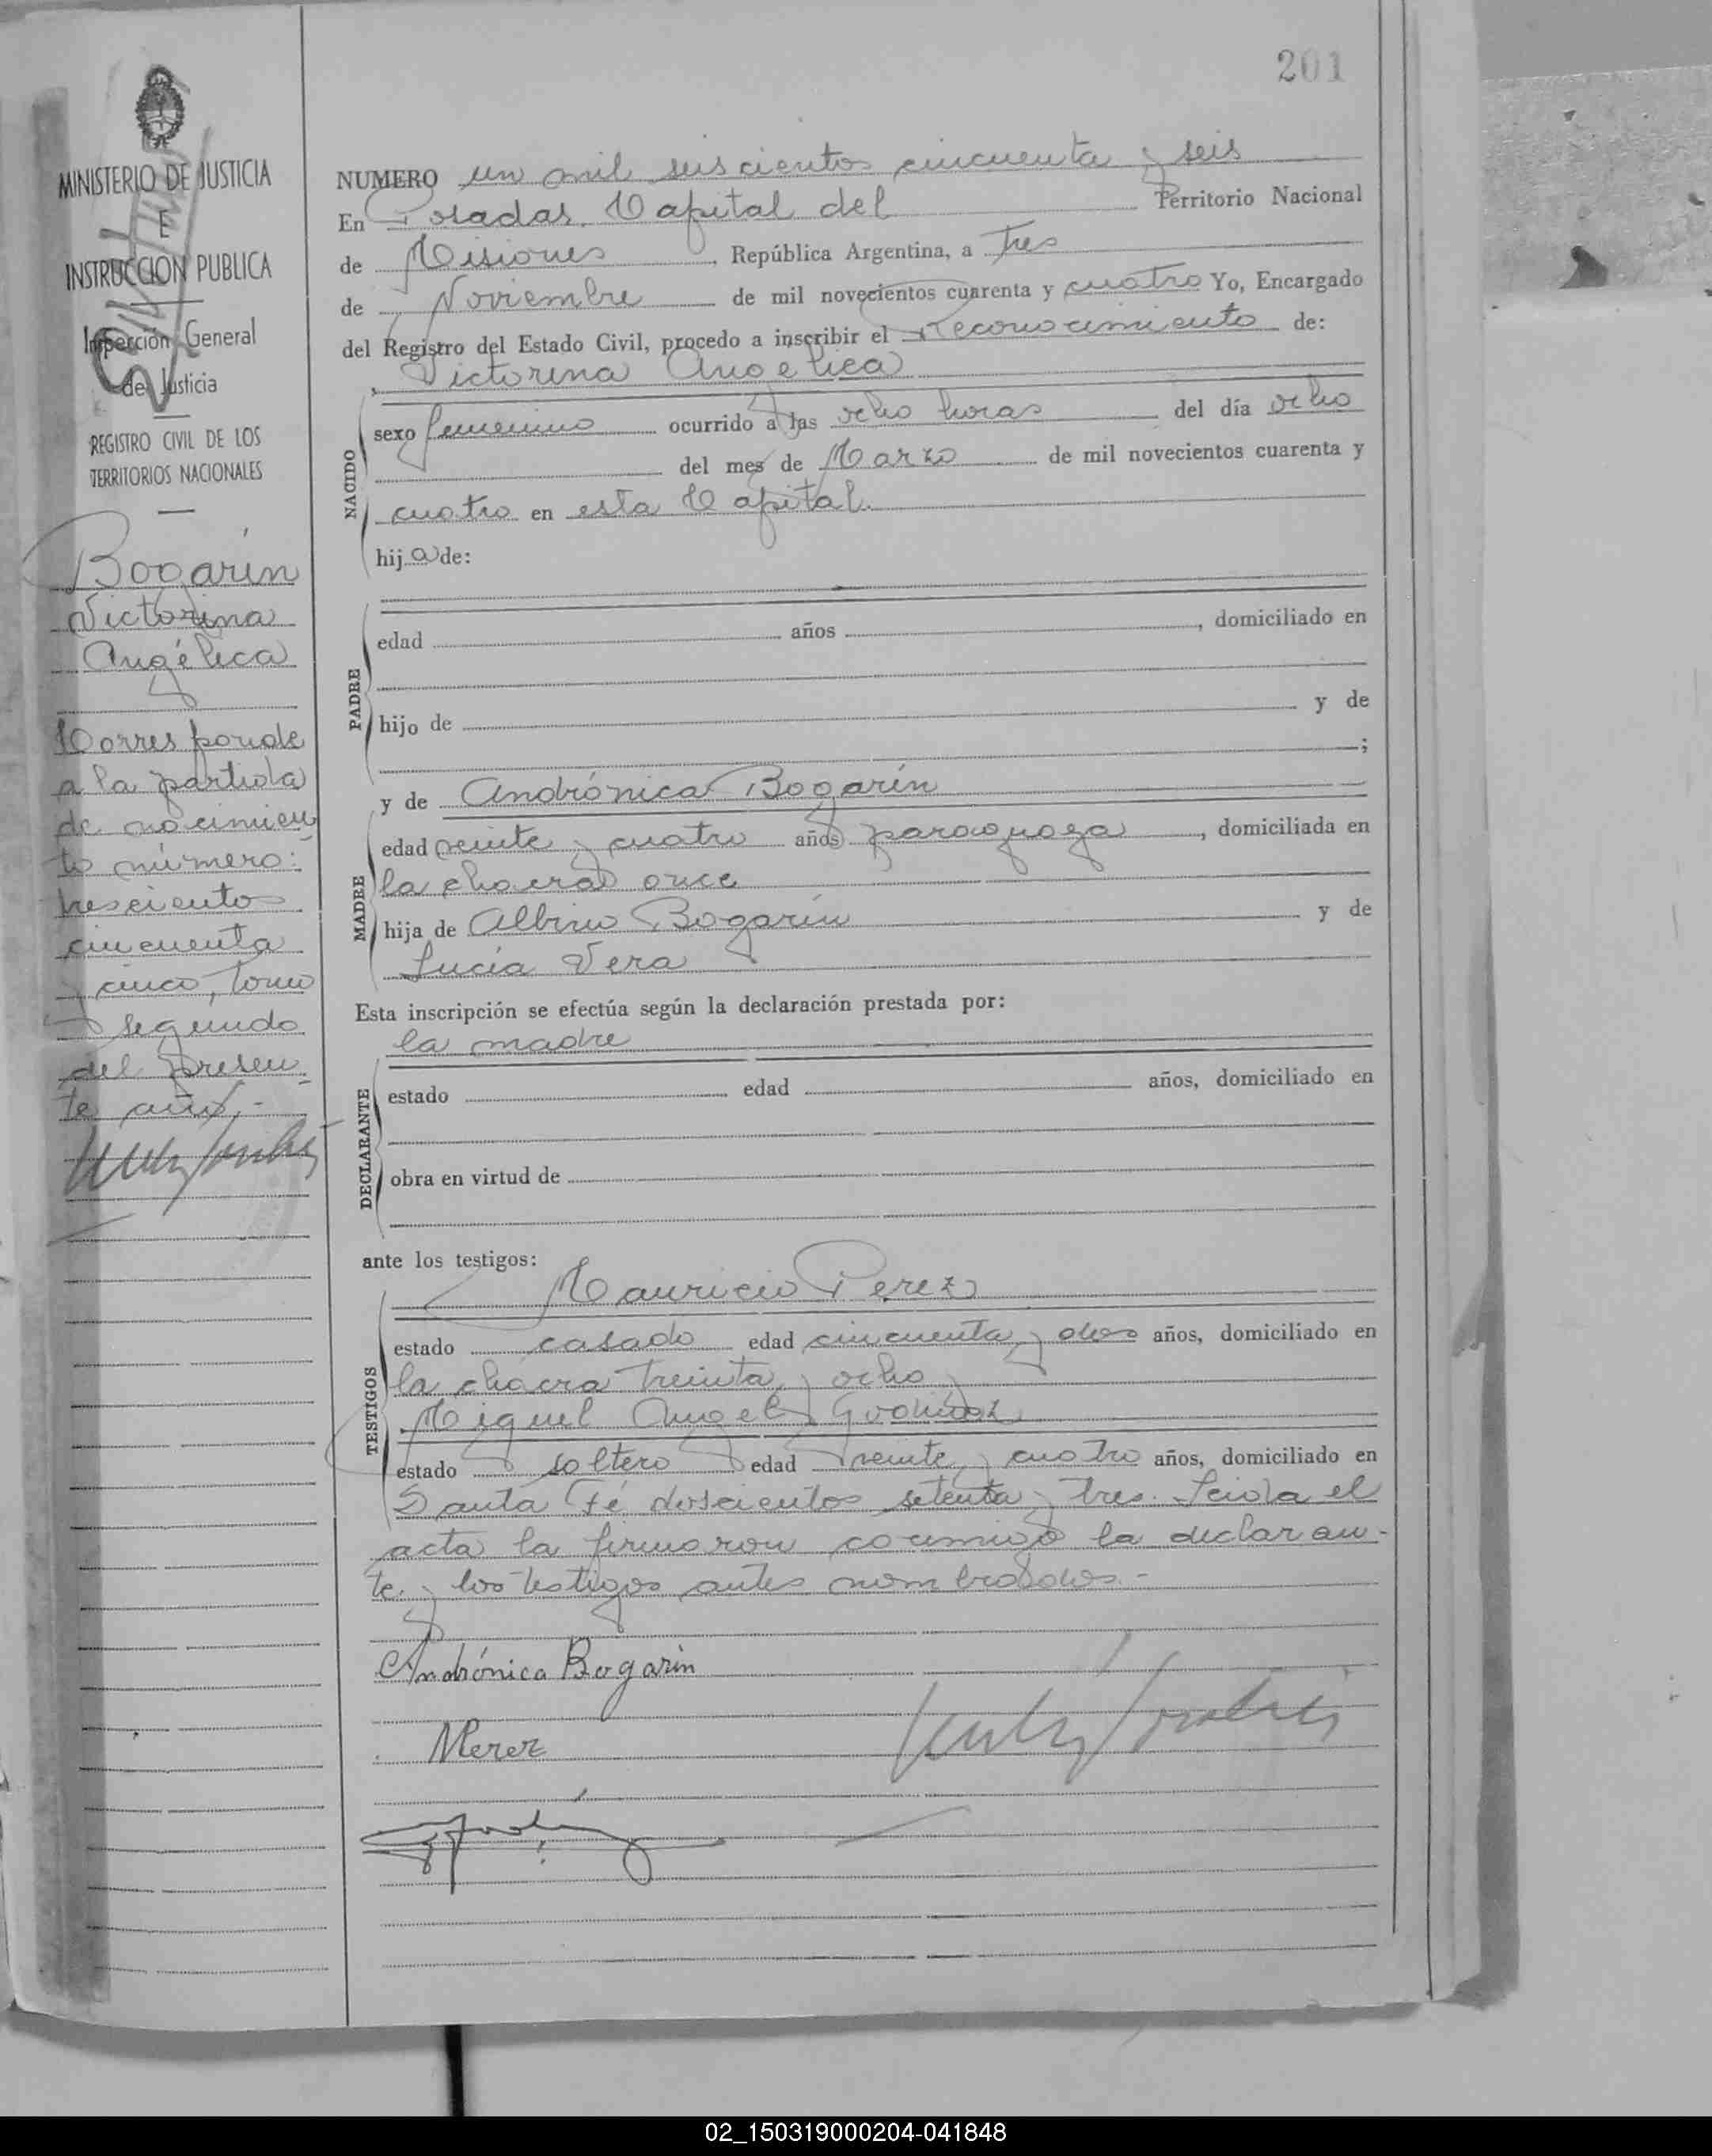 201
MINISTERIO DE JUSTICIA
E
INSTRUCCION PUBLICA
Inspección General
de Justicia
REGISTRO CIVIL DE LOS
TERRITORIOS NACIONALES
Bogarín
Victorina
Angélica
Corresponde
a la partida
de nacimien
to número:
trescientos
cincuenta
y cinco, tomo
segundo
del presen
te año.-
NUMERO un mil seiscientos cincuenta y seis
En Posadas, Capital del Territorio Nacional
de Misiones, República Argentina, a tres
de Noviembre de mil novecientos cuarenta y cuatro Yo, Encargado
del Registro del Estado Civil, procedo a inscribir el Reconocimiento de:
Victorina Angelica
NACIDO
sexo femenino ocurrido a las ocho horas del día ocho
del mes de Marzo de mil novecientos cuarenta y
cuatro en esta Capital.
hija de:
PADRE
edad años , domiciliado en
hijo de y de
;
y de Andrónica Bogarín
MADRE
edad veinte y cuatro años paraguaya, domiciliada en
la chacra once
hija de Albino Bogarín y de
Lucía Vera
Esta inscripción se efectúa según la declaración prestada por:
la madre
DECLARANTE
estado edad años, domiciliado en
obra en virtud de
ante los testigos:
Mauricio Perez
TESTIGOS
estado casado edad cincuenta y dos años, domiciliado en
la chacra treinta y ocho y
Miguel Angel
estado soltero edad veinte y cuatro años, domiciliado en
Santa Fé doscientos setenta y tres. Leida el
acta la firmaron conmigo la declaran-
te y los testigos antes nombrados.-
Andrónica Bogarin
MPerez
02_150319000204-041848